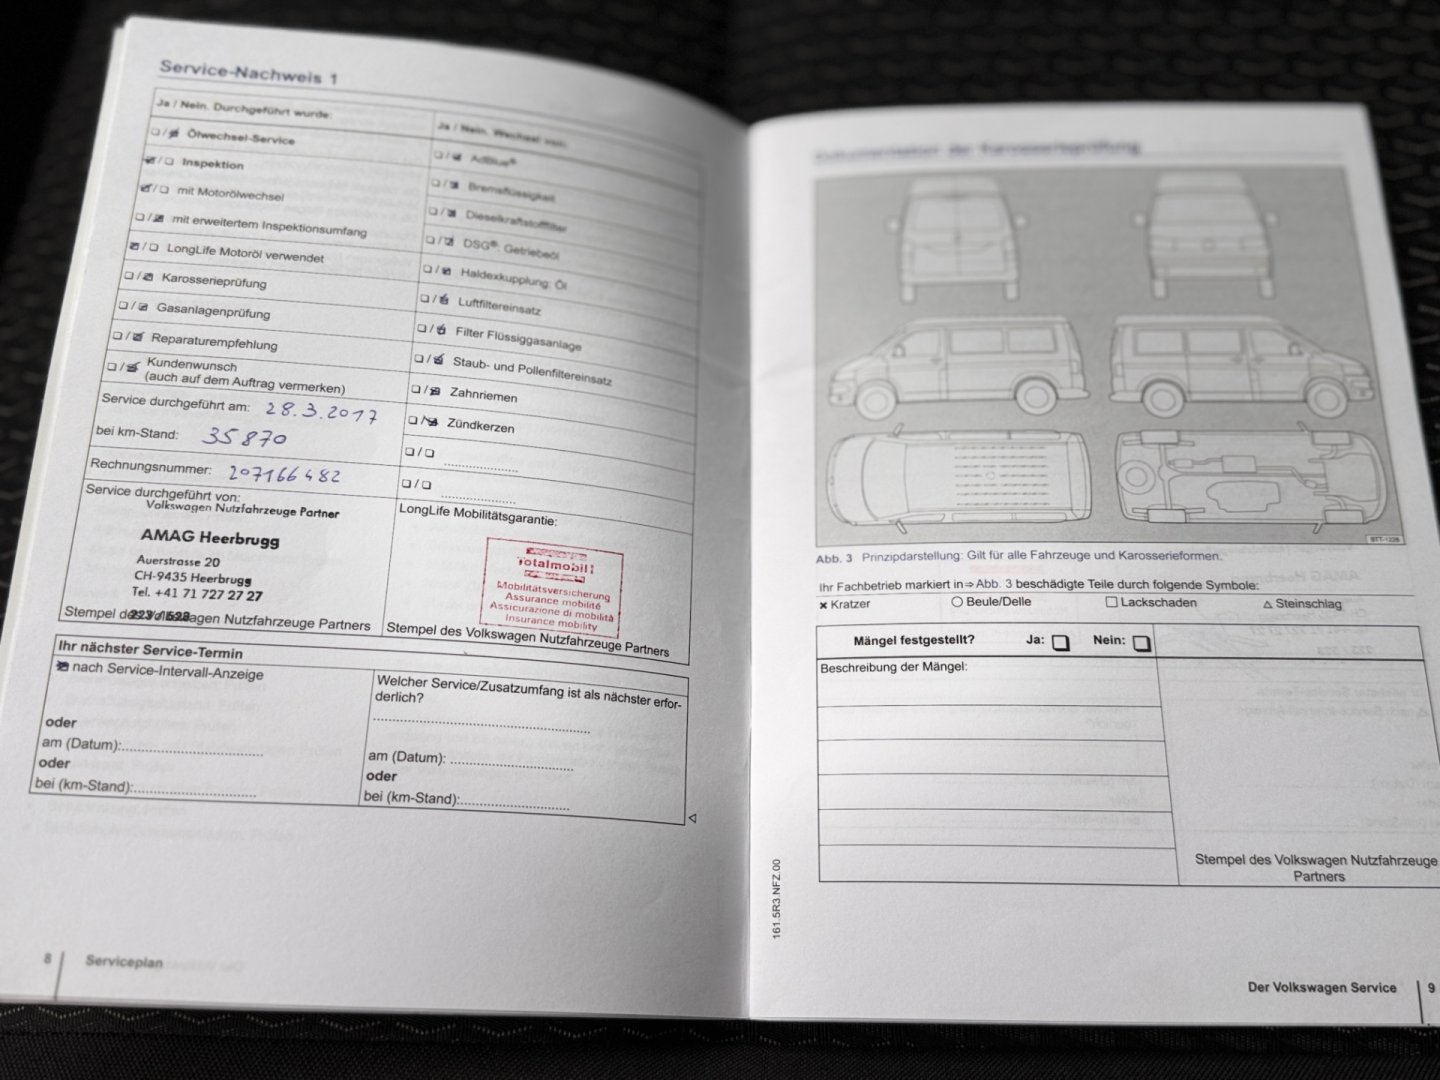 Service-Nachweis 1
Ja / Nein. Durchgeführt wurde:
❑/☒ Ölwechsel-Service
☒/❑ Inspektion
☒/❑ mit Motorölwechsel
❑/☒ mit erweitertem Inspektionsumfang
☒/❑ LongLife Motoröl verwendet
❑/☒ Karosserieprüfung
❑/☒ Gasanlagenprüfung
❑/☒ Reparaturempfehlung
❑/☒ Kundenwunsch
(auch auf dem Auftrag vermerken)
Service durchgeführt am: 28.3.2017
bei km-Stand: 35870
Rechnungsnummer: 207166482
Service durchgeführt von:
Volkswagen Nutzfahrzeuge Partner
AMAG Heerbrugg
Auerstrasse 20
CH-9435 Heerbrugg
Tel. +41 71 727 27 27
Stempel des Volkswagen Nutzfahrzeuge Partners
Ja / Nein. Wechsel von:
❑/☒ AdBlue®
❑/☒ Bremsflüssigkeit
❑/☒ Dieselkraftstofffilter
❑/☒ DSG®: Getriebeöl
❑/☒ Haldexkupplung: Öl
❑/☒ Luftfiltereinsatz
❑/☒ Filter Flüssiggasanlage
❑/☒ Staub- und Pollenfiltereinsatz
❑/☒ Zahnriemen
❑/☒ Zündkerzen
❑/❑ ....................
❑/❑ ....................
LongLife Mobilitätsgarantie:
Totalmobil!
Mobilitätsversicherung
Assurance mobilité
Assicurazione di mobilità
Insurance mobility
Stempel des Volkswagen Nutzfahrzeuge Partners
Ihr nächster Service-Termin
☒ nach Service-Intervall-Anzeige
oder
am (Datum):....................
oder
bei (km-Stand):....................
Welcher Service/Zusatzumfang ist als nächster erfor-
derlich?
....................
am (Datum): ....................
oder
bei (km-Stand):....................
◁
8 Serviceplan
Dokumentation der Karosserieprüfung
BTT-1228
Abb. 3 Prinzipdarstellung: Gilt für alle Fahrzeuge und Karosserieformen.
Ihr Fachbetrieb markiert in ⇒ Abb. 3 beschädigte Teile durch folgende Symbole:
✖ Kratzer ○ Beule/Delle □ Lackschaden △ Steinschlag
Mängel festgestellt? Ja: ❑ Nein: ❑
Beschreibung der Mängel:
Stempel des Volkswagen Nutzfahrzeuge
Partners
161.5R3.NFZ.00
Der Volkswagen Service 9